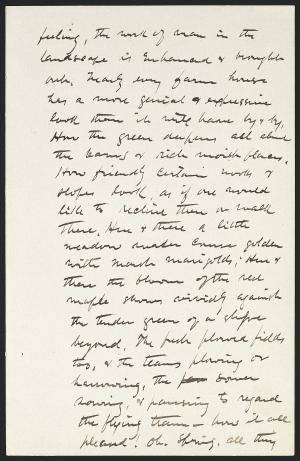 feeling, the work of man in the
landscape is enhanced & brought
out. Nearly every farm house
has a more genial & expressive
look than it will have by & by.
How the green deepens all about
the barns & rich moist places.
How friendly certain nooks &
slopes look, as if one would
like to recline there or walk
there. Here & there a little
meadow water course golden
with marsh marigolds. Here &
there the bloom of the red
maple shows vividly against
the tender green of a slope
beyond. The fresh plowed fields
too, & the teams plowing or
harrowing, the sower
sowing, & pausing to regard
the flying train — how it all
pleased! Oh. Spring. all thy